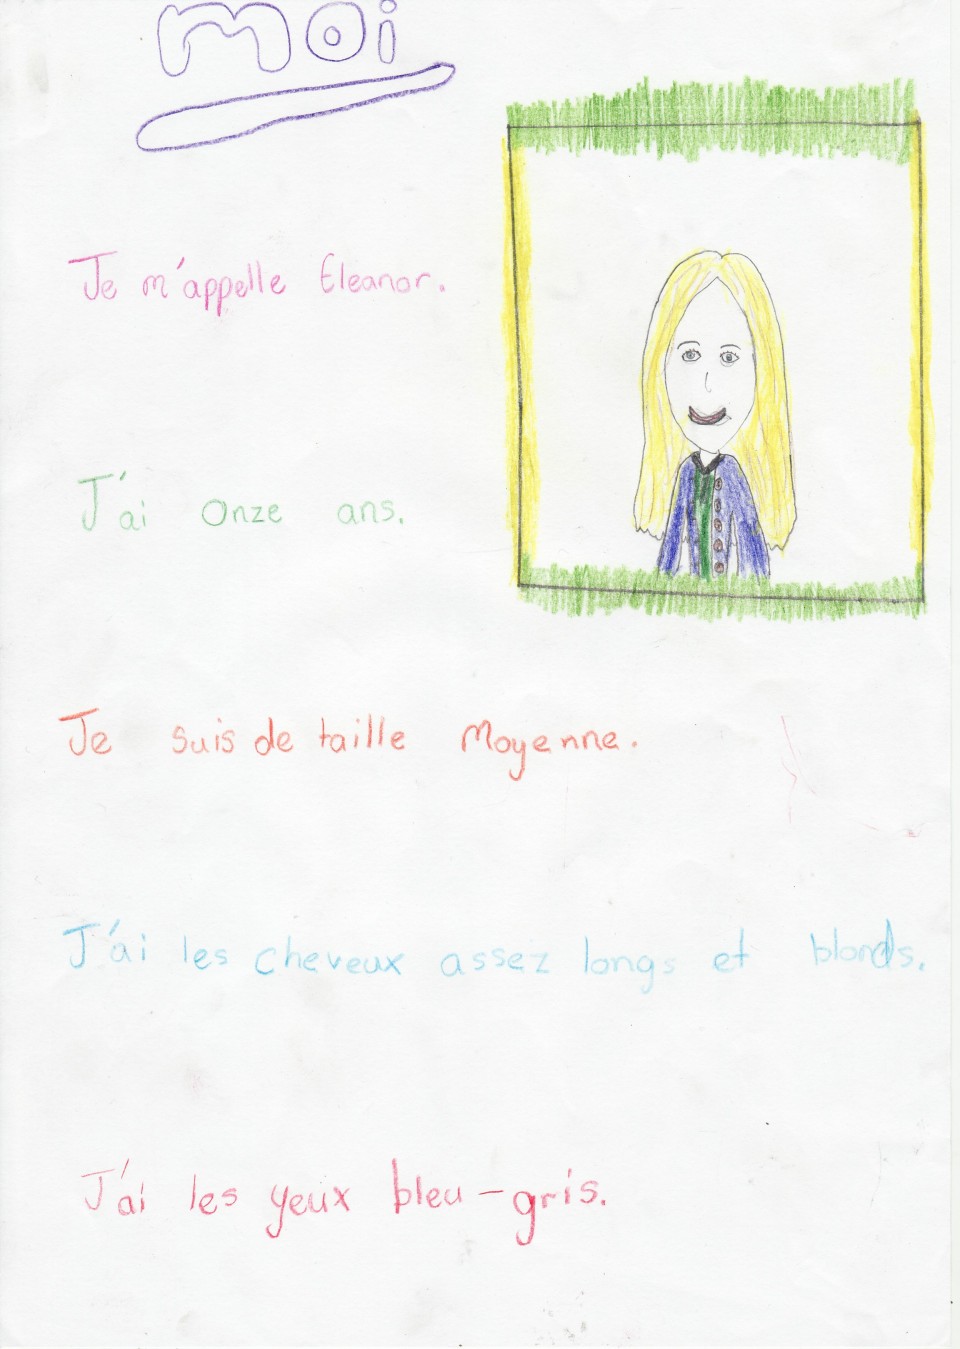 moi
Je m'appelle Eleanor.
J'ai onze ans.
Je suis de taille Moyenne.
J'ai les cheveux assez longs et blonds.
J'ai les yeux bleu-gris.